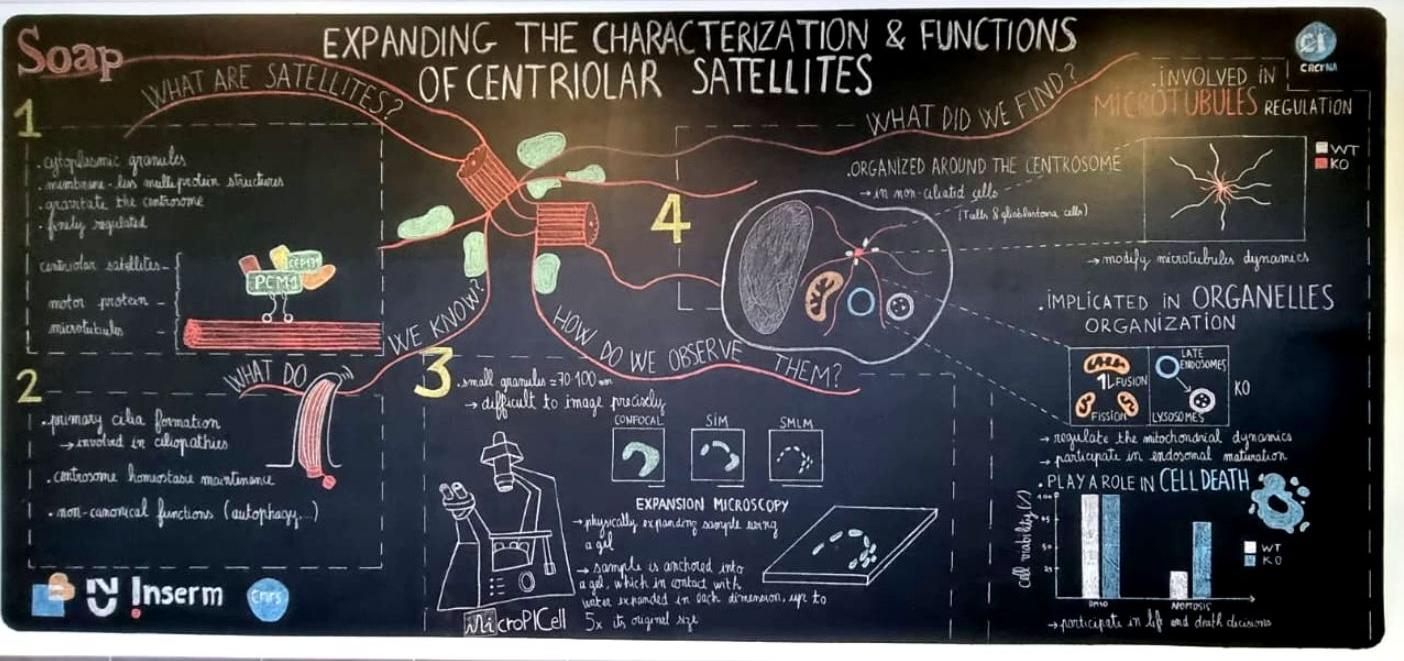 Soap
EXPANDING THE CHARACTERIZATION & FUNCTIONS
OF CENTRIOLAR SATELLITES
CRCI2NA
1
WHAT ARE SATELLITES?
. cytoplasmic granules
. membrane-less multiprotein structures
. gravitate the centrosome
. finely regulated
centriolar satellites
PCM1
CEP131
motor protein
microtubules
2
WHAT DO WE KNOW?
. primary cilia formation
→ involved in ciliopathies
. centrosome homeostasie maintenance
. non-canonical functions (autophagy...)
Inserm
cnrs
3
HOW DO WE OBSERVE THEM?
. small granules ≈ 70-100 nm
→ difficult to image precisely
CONFOCAL
SIM
SMLM
EXPANSION MICROSCOPY
→ physically expanding sample using
a gel
→ sample is anchored into
a gel, which in contact with
water expanded in each dimension, up to
5x its original size
MicroPICell
4
WHAT DID WE FIND?
.ORGANIZED AROUND THE CENTROSOME
→ in non-ciliated cells
.INVOLVED IN
MICROTUBULES REGULATION
WT
KO
→ modify microtubules dynamics
.IMPLICATED IN ORGANELLES
ORGANIZATION
FUSION
FISSION
LATE
ENDOSOMES
LYSOSOMES
KO
→ regulate the mitochondrial dynamics
→ participate in endosomal maturation
. PLAY A ROLE IN CELL DEATH
cell viability (%)
100
75
50
25
DMSO
APOPTOSIS
WT
KO
→ participate in life and death decisions